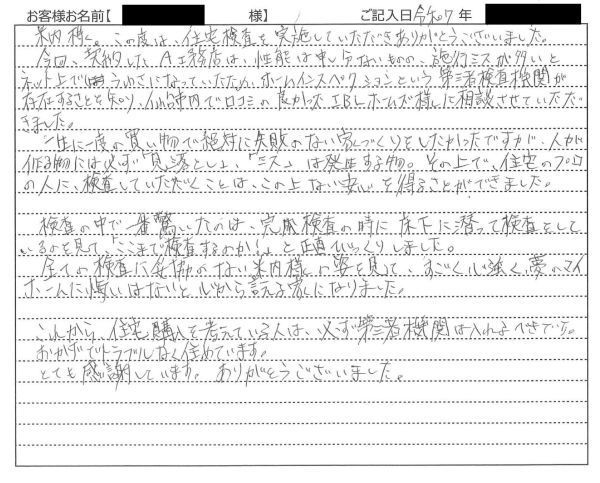 お客様お名前【 様】 ご記入日 令和7年
米内様。この度は、住宅検査を実施していただきありがとうございました。
今回、契約した、A工務店は、性能は申し分ないものの、施行ミスが多いと
ネット上ではうわさになっていたため、ホームインスペクションという第三者検査機関が
存在することを知り、仙台市内で口コミの良かったIBLホームズ様に相談させていただ
きました。
一生に一度の買い物で絶対に失敗のない家づくりをしたかったですが、人が
作る物には必ず「見落とし」、「ミス」は発生する物。その上で、住宅のプロ
の人に、検査していただくことは、この上ない安心を得ることができました。
検査の中で一番驚いたのは、完成検査の時に床下に潜って検査をして
いるのを見て、「ここまで検査するのか!」と正直びっくりしました。
全ての検査に妥協のない米内様の姿を見て、すごく心強く、夢のマイ
ホームに悔いはないと心から言える家になりました。
これから、住宅購入を考えている人は、必ず第三者機関は入れるべきです。
おかげでトラブルなく住めています。
とても感謝しています。ありがとうございました。